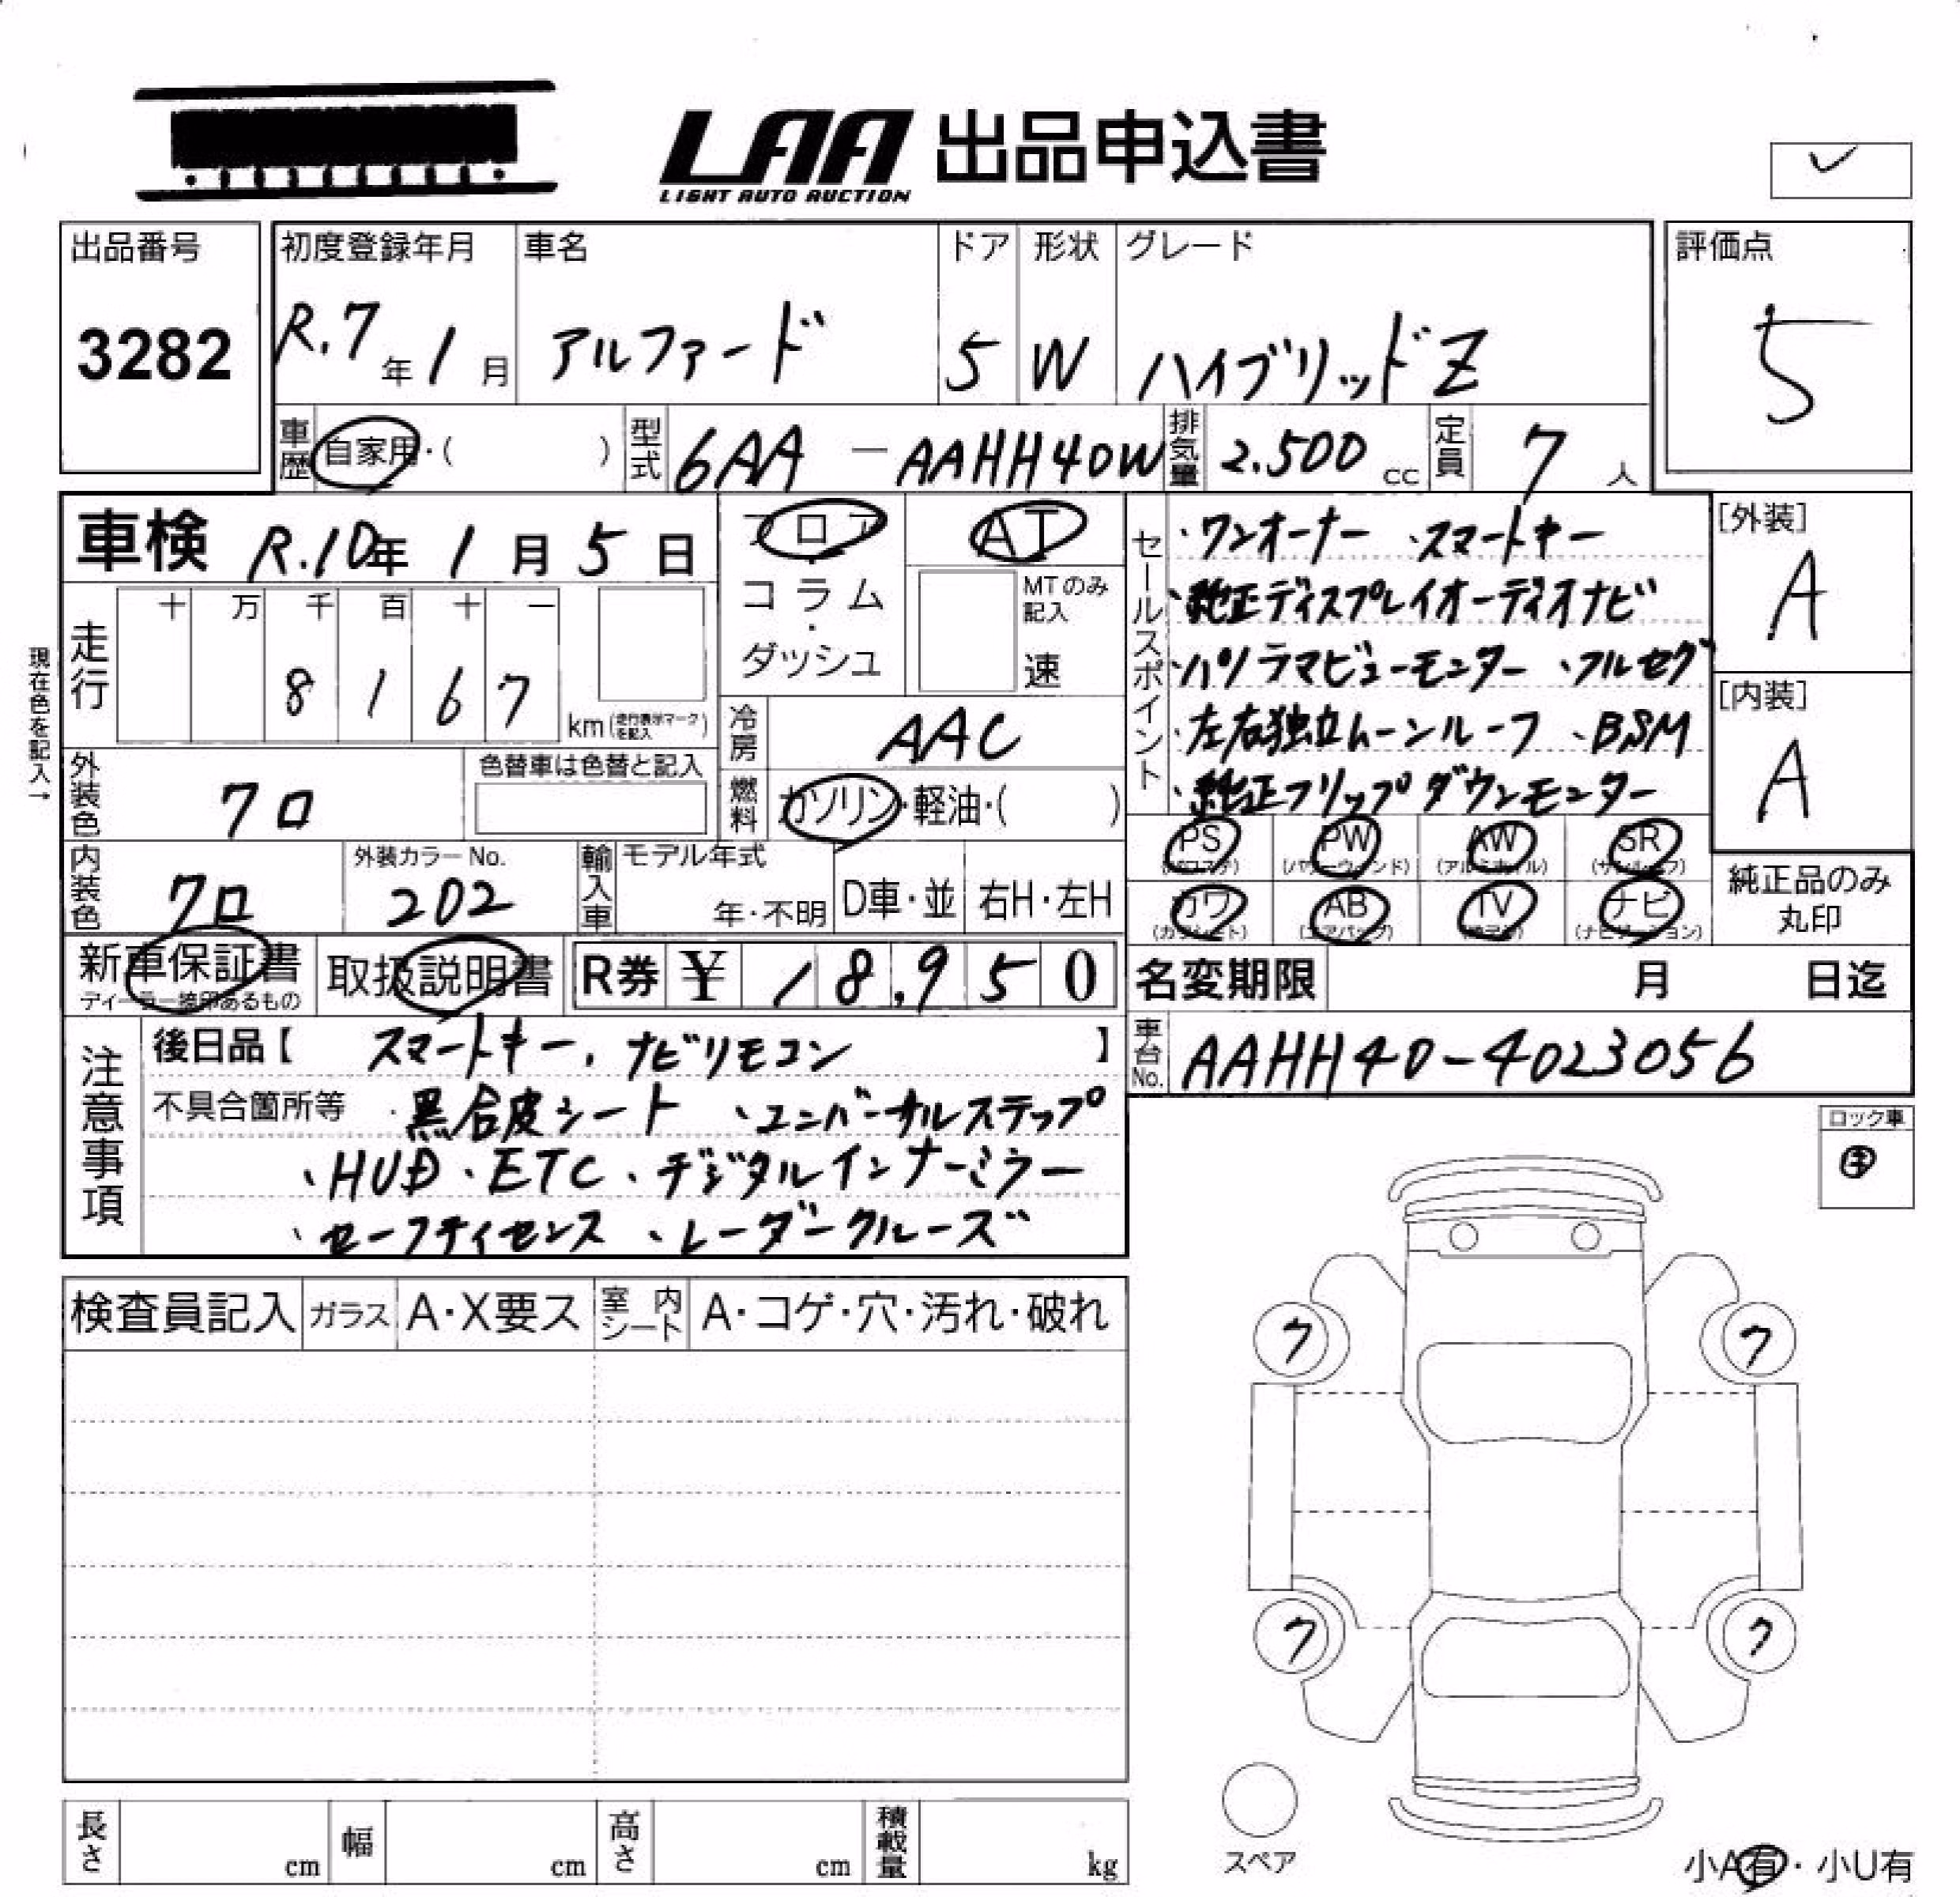 LAA 出品申込書
LIGHT AUTO AUCTION
✓
出品番号
3282
初度登録年月
R.7年1月
車名
アルファード
ドア
5
形状
W
グレード
ハイブリッドZ
評価点
5
車歴
自家用・( )
型式
6AA-AAHH40W
排気量
2.500cc
定員
7人
車検 R.10年1月5日
フロア・コラム・ダッシュ
AT
MTのみ記入
速
走行
十 万 千 百 十 一
8 1 6 7
km(走行表示マークを記入)
現在色を記入→
冷房
AAC
外装色
クロ
色替車は色替と記入
燃料
ガソリン・軽油・( )
内装色
クロ
外装カラーNo.
202
輸入車
モデル年式
年・不明
D車・並
右H・左H
セールスポイント
・ワンオーナー ・スマートキー
・純正ディスプレイオーディオナビ
・パノラマビューモニター ・フルセグ
・左右独立ムーンルーフ ・BSM
・純正フリップダウンモニター
[外装]
A
[内装]
A
PS (パワステ)
PW (パワーウィンド)
AW (アルミホイル)
SR (サンルーフ)
カワ (カワシート)
AB (エアバッグ)
TV (テレビ)
ナビ (ナビゲーション)
純正品のみ丸印
新車保証書
ディーラー捺印あるもの
取扱説明書
R券 ¥ 18,950
名変期限 月 日迄
車台No.
AAHH40-4023056
注意事項
後日品【 スマートキー、ナビリモコン 】
不具合箇所等 ・黒合皮シート ・ユニバーサルステップ
・HUD ・ETC ・デジタルインナーミラー
・セーフティセンス ・レーダークルーズ
ロック車
検査員記入
ガラス
A・X要ス
室内シート
A・コゲ・穴・汚れ・破れ
ク
ク
ク
ク
スペア
長さ cm
幅 cm
高さ cm
積載量 kg
小A有・小U有